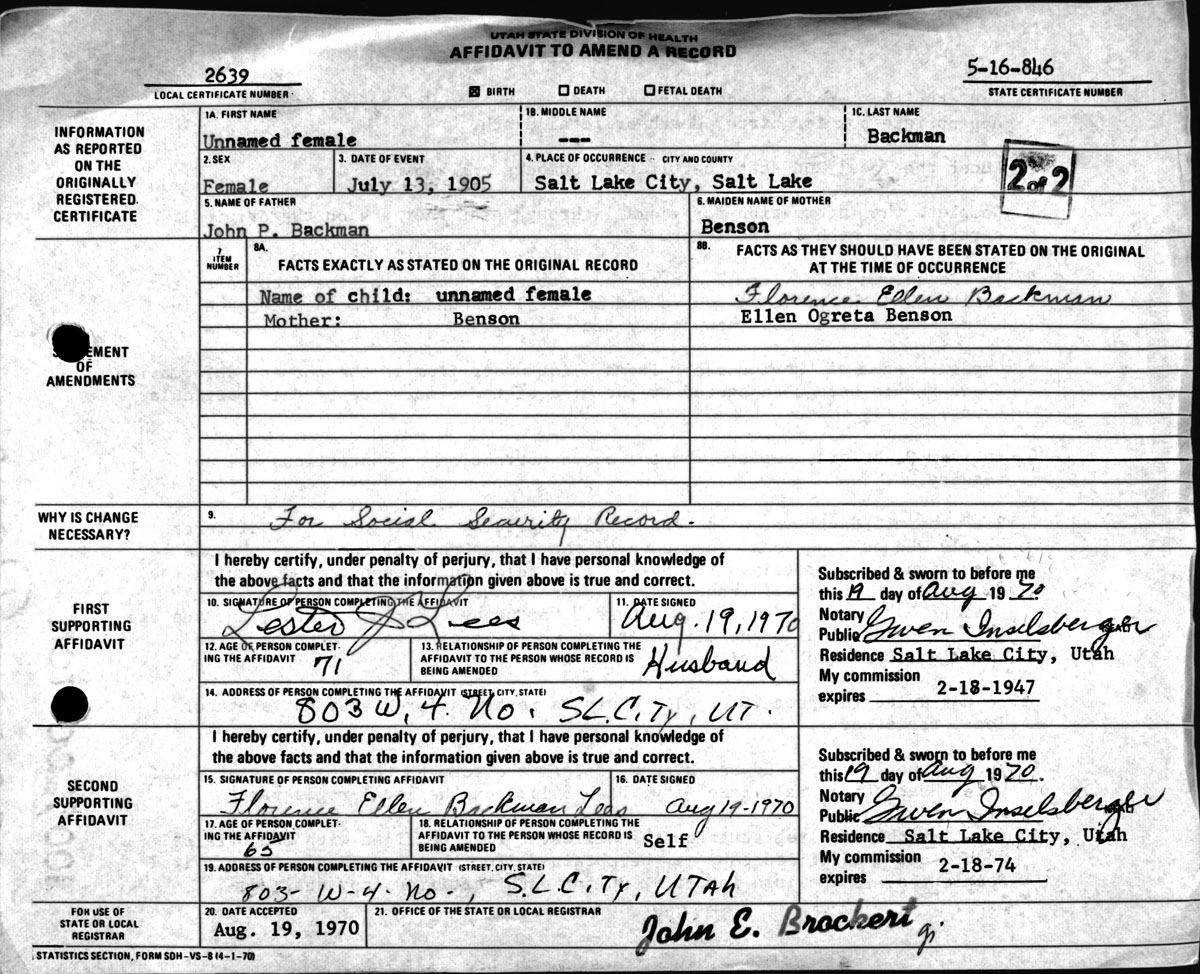 UTAH STATE DIVISION OF HEALTH
AFFIDAVIT TO AMEND A RECORD
2639
LOCAL CERTIFICATE NUMBER
☒ BIRTH ☐ DEATH ☐ FETAL DEATH
5-16-846
STATE CERTIFICATE NUMBER
INFORMATION
AS REPORTED
ON THE
ORIGINALLY
REGISTERED
CERTIFICATE
1A. FIRST NAME
Unnamed female
1B. MIDDLE NAME
---
1C. LAST NAME
Backman
2. SEX
Female
3. DATE OF EVENT
July 13, 1905
4. PLACE OF OCCURRENCE - CITY AND COUNTY
Salt Lake City, Salt Lake
2 of 2
5. NAME OF FATHER
John P. Backman
6. MAIDEN NAME OF MOTHER
Benson
OF
AMENDMENTS
7
ITEM
NUMBER
8A.
FACTS EXACTLY AS STATED ON THE ORIGINAL RECORD
8B. FACTS AS THEY SHOULD HAVE BEEN STATED ON THE ORIGINAL
AT THE TIME OF OCCURRENCE
Name of child: unnamed female
Florence Ellen Backman
Mother: Benson
Ellen Ogreta Benson
WHY IS CHANGE
NECESSARY?
9. For Social Security Record.
FIRST
SUPPORTING
AFFIDAVIT
I hereby certify, under penalty of perjury, that I have personal knowledge of
the above facts and that the information given above is true and correct.
10. SIGNATURE OF PERSON COMPLETING THE AFFIDAVIT
Lester J Lees
11. DATE SIGNED
Aug. 19, 1970
12. AGE OF PERSON COMPLET-
ING THE AFFIDAVIT
71
13. RELATIONSHIP OF PERSON COMPLETING THE
AFFIDAVIT TO THE PERSON WHOSE RECORD IS
BEING AMENDED
Husband
14. ADDRESS OF PERSON COMPLETING THE AFFIDAVIT (STREET, CITY, STATE)
803 W. 4. No. S.L.C.Ty, UT.
Subscribed & sworn to before me
this 19 day of Aug 1970
Notary
Public Gwen Inselsberger
Residence Salt Lake City, Utah
My commission
expires 2-18-1947
SECOND
SUPPORTING
AFFIDAVIT
I hereby certify, under penalty of perjury, that I have personal knowledge of
the above facts and that the information given above is true and correct.
15. SIGNATURE OF PERSON COMPLETING AFFIDAVIT
Florence Ellen Backman Lees
16. DATE SIGNED
Aug 19-1970
17. AGE OF PERSON COMPLET-
ING THE AFFIDAVIT
65
18. RELATIONSHIP OF PERSON COMPLETING THE
AFFIDAVIT TO THE PERSON WHOSE RECORD IS
BEING AMENDED
Self
19. ADDRESS OF PERSON COMPLETING THE AFFIDAVIT (STREET, CITY, STATE)
803- W-4- No-, S.L.C.Ty, UTAH
Subscribed & sworn to before me
this 19 day of Aug 1970.
Notary
Public Gwen Inselsberger
Residence Salt Lake City, Utah
My commission
expires 2-18-74
FOR USE OF
STATE OR LOCAL
REGISTRAR
20. DATE ACCEPTED
Aug. 19, 1970
21. OFFICE OF THE STATE OR LOCAL REGISTRAR
John E. Brockert
STATISTICS SECTION, FORM SDH-VS-8 (4-1-70)